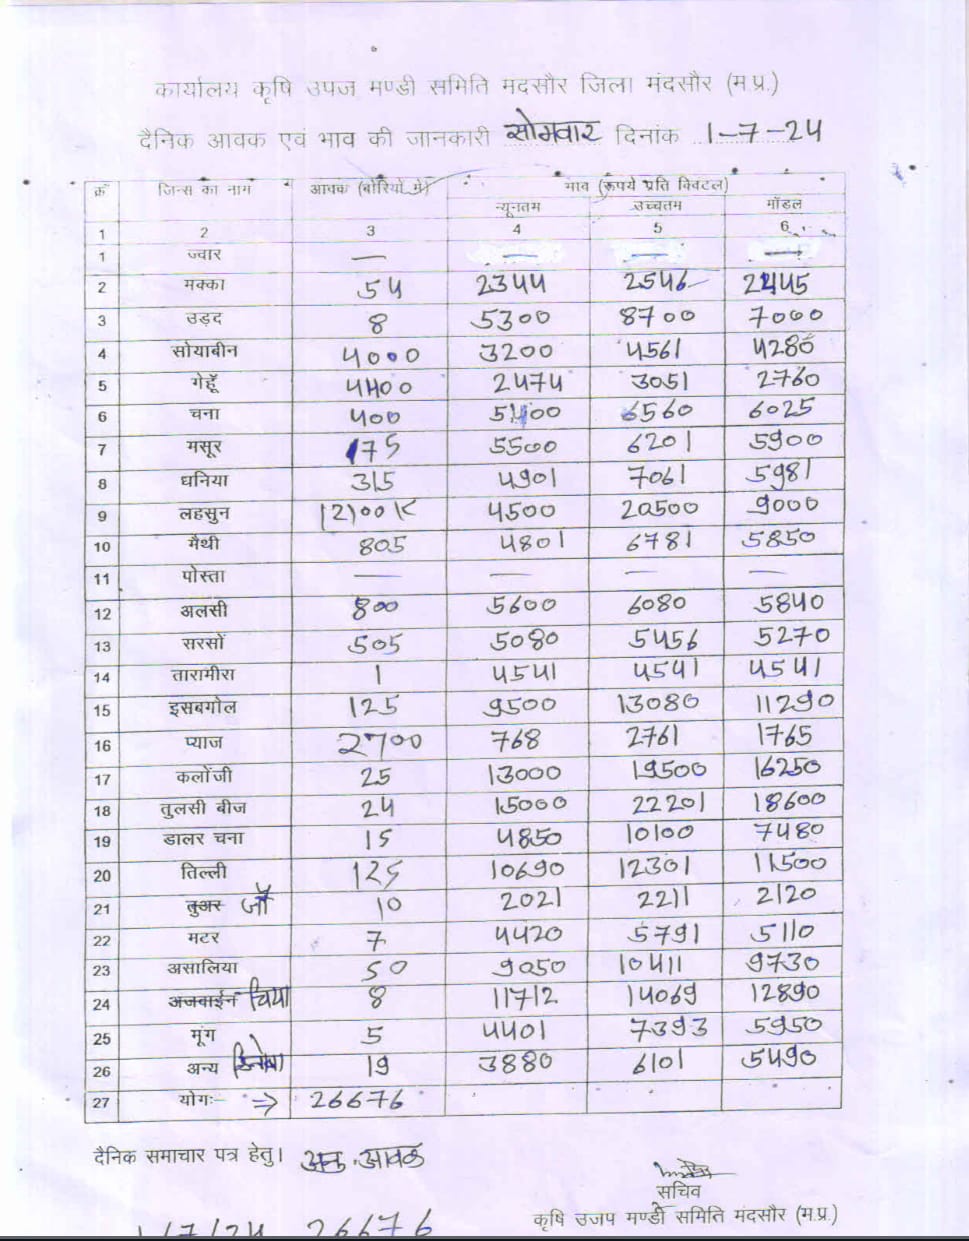 कार्यालय कृषि उपज मण्डी समिति मदसौर जिला मंदसौर (म.प्र.)
दैनिक आवक एवं भाव की जानकारी सोमवार दिनांक 1-7-24
क्रं जिन्स का नाम आवक (बोरियो मे) भाव (रूपये प्रति क्विटल)
न्यूनतम उच्चतम मॉडल
1 2 3 4 5 6
1 ज्वार — — — —
2 मक्का 54 2344 2546 2445
3 उड़द 8 5300 8700 7000
4 सोयाबीन 4000 3200 4561 4280
5 गेहूँ 4400 2474 3051 2760
6 चना 400 5400 6560 6025
7 मसूर 175 5500 6201 5900
8 धनिया 315 4901 7061 5981
9 लहसुन 12100 K 4500 20500 9000
10 मैथी 805 4801 6781 5850
11 पोस्ता — — — —
12 अलसी 800 5600 6080 5840
13 सरसों 505 5080 5456 5270
14 तारामीरा 1 4541 4541 4541
15 इसबगोल 125 9500 13080 11290
16 प्याज 2700 768 2761 1765
17 कलोंजी 25 13000 19500 16250
18 तुलसी बीज 24 15000 22201 18600
19 डालर चना 15 4850 10100 7480
20 तिल्ली 125 10690 12301 11500
21 तुअर जौ 10 2021 2211 2120
22 मटर 7 4420 5791 5110
23 असालिया 50 9050 10411 9730
24 अजवाईन चिया 8 11712 14069 12890
25 मूंग 5 4401 7393 5950
26 अन्य 19 3880 6101 5490
27 योगः- => 26676
दैनिक समाचार पत्र हेतु। आवक
सचिव
कृषि उजप मण्डी समिति मंदसौर (म.प्र.)
1/7/24 26676